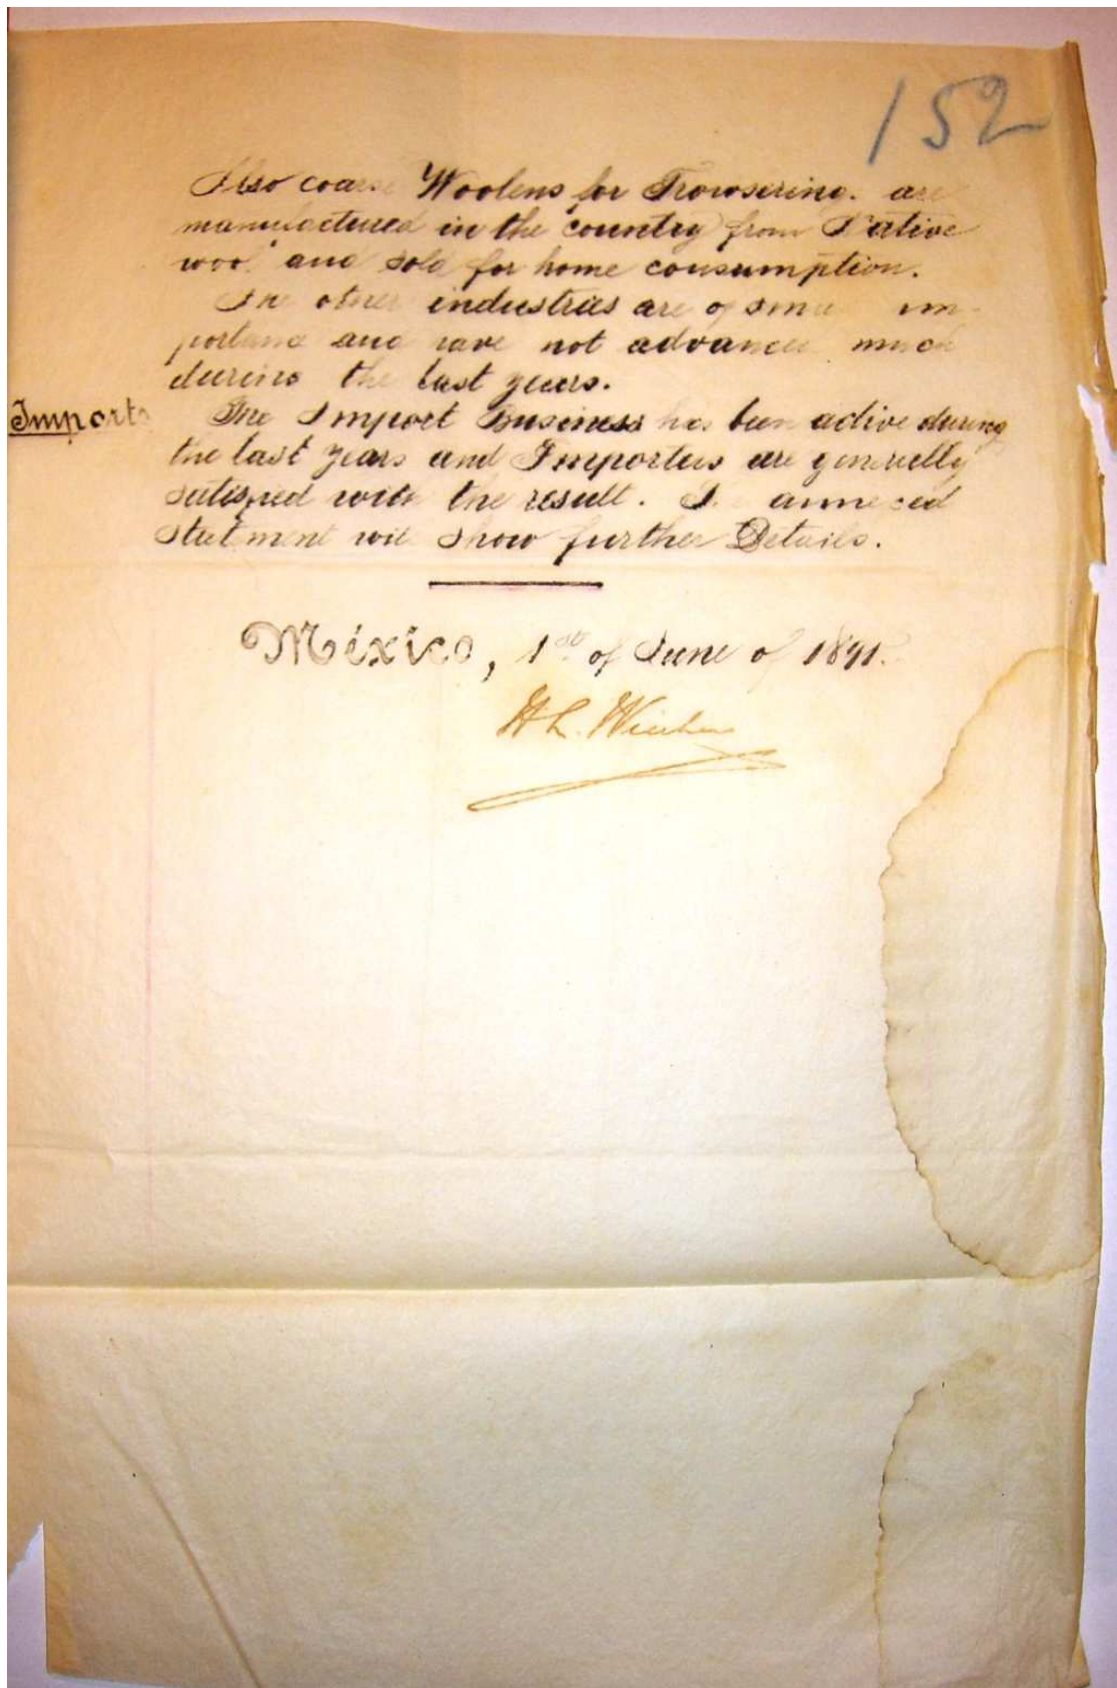 152
Also coarse Woolens for Trowsering. are
manufactured in the country from Native
wool and sold for home consumption.
The other industries are of small im-
portance and have not advanced much
during the last years.
Imports The Import Business has been active during
the last years and Importers are generally
satisfied with the result. The annexed
statment will show further Details.
México, 1st of June of 1891.
H L.